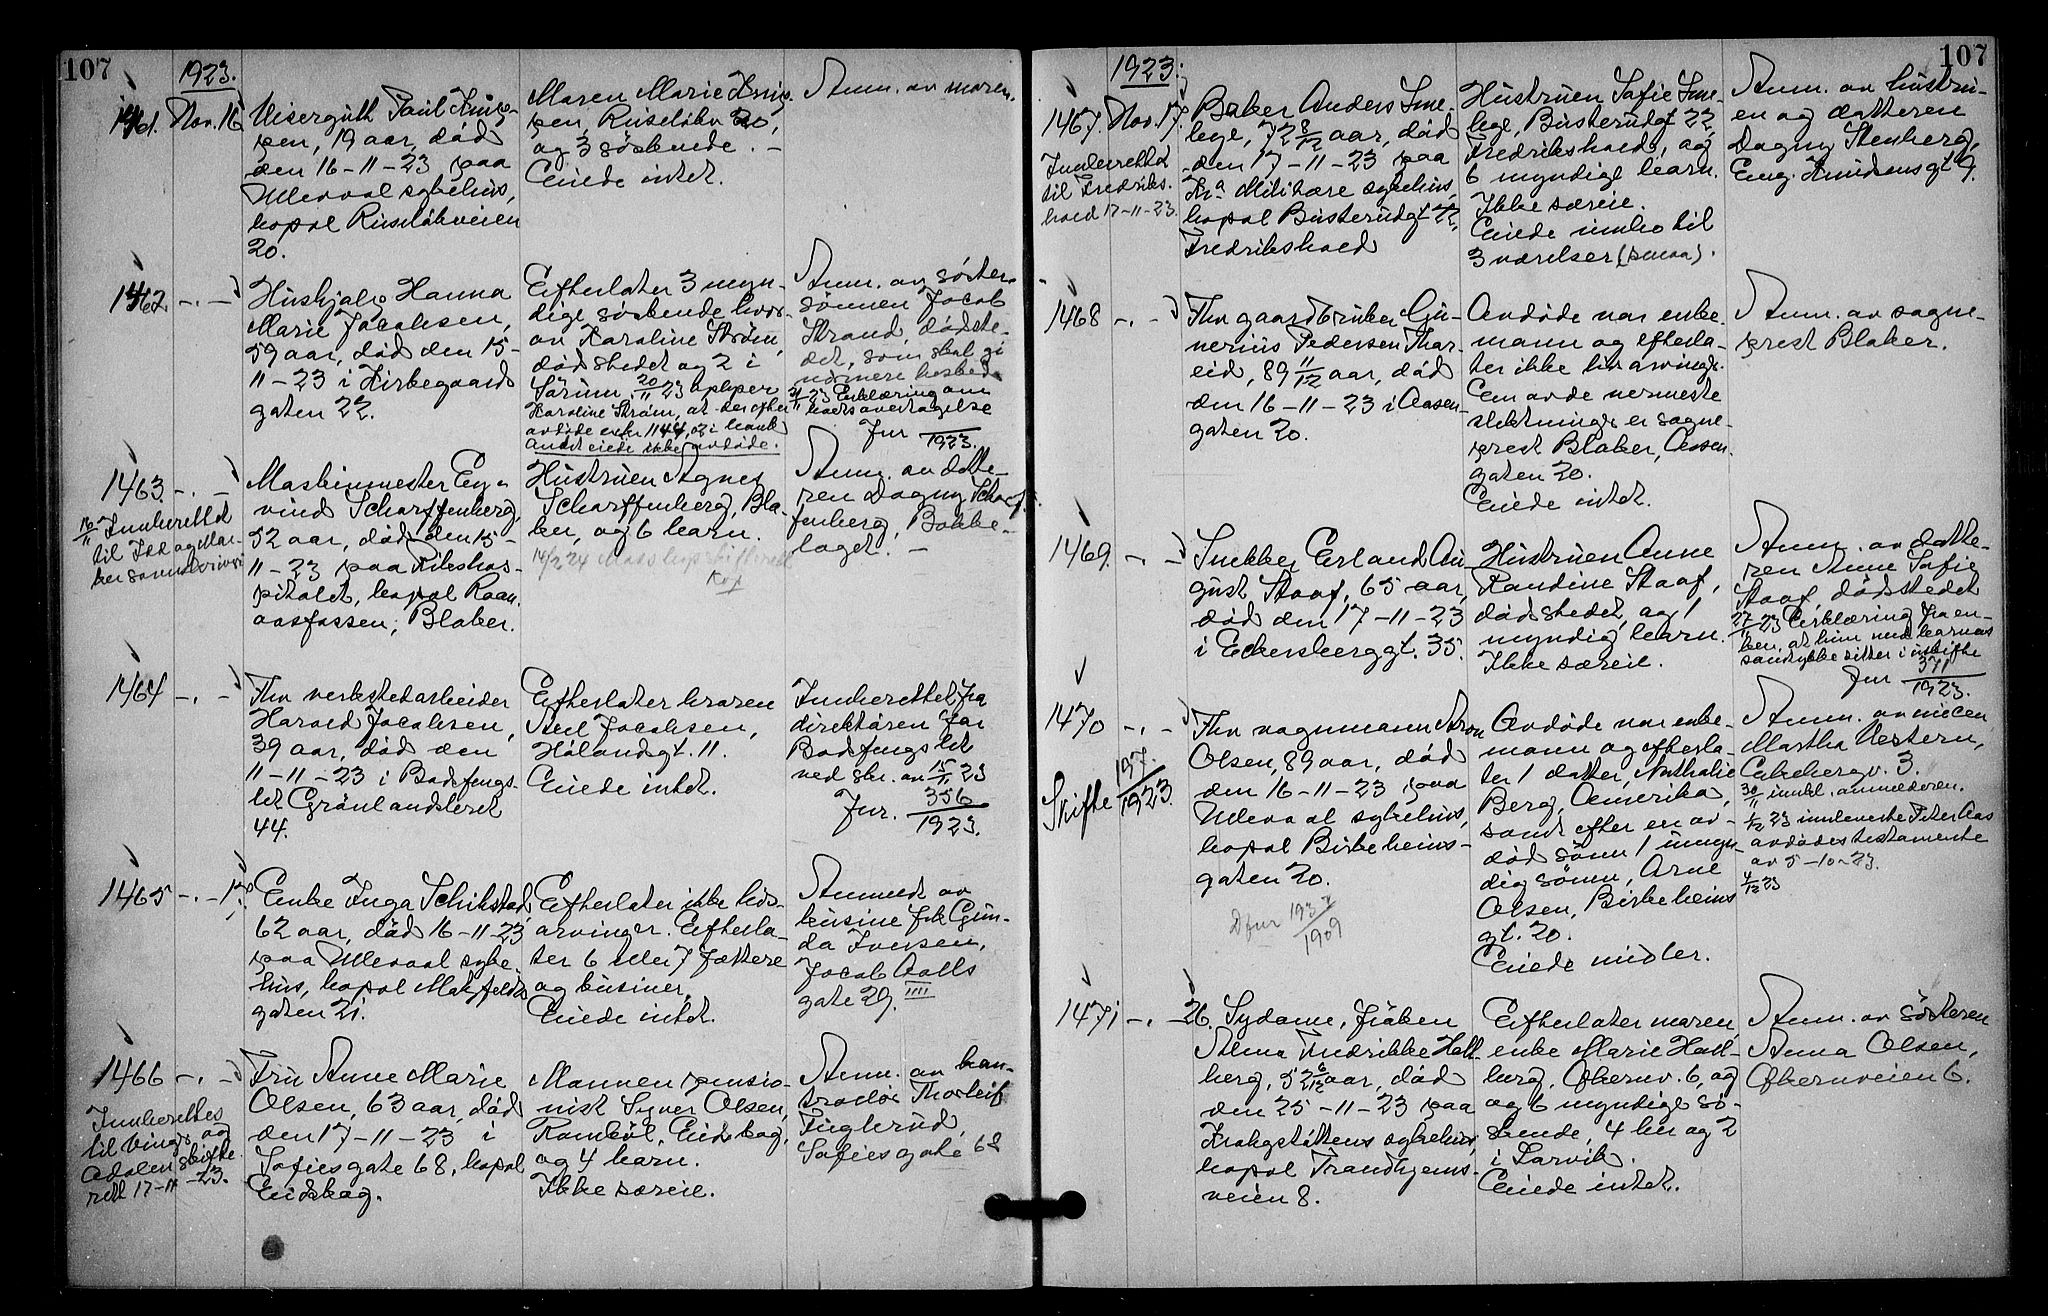 107
1923.
1461. Nov. 16
Visergutt Paul
pen, 19 aar, død
den 16-11-23 paa
Ullevaal sykehus,
bopæl Ruseløkveien
20.
Maren Marie
pen, Ruseløkv 20,
og 3 søskende. -
Eiede intet.
Anm. av moren.
1462 -.-
Hushjælp Hanna
Marie Jacobsen,
59 aar, død den 15-
11-23 i Kirkegaards
gaten 22.
Efterlater 3 myn-
dige søskende hvor-
av Karoline Strøm,
dødsstedet og 2 i
Sørum. 20/11 23 oplyser
Karoline Strøm, at der efter
avdøde er kr 1144, og i bank
Andet eiede ikke avdøde.
Anm. av søster-
sønnen Jacob
Strand, dødste-
det, som skal gi
nærmere besked.
21/11 23 Erklæring om
boets overtagelse
Jnr 1923.
1463 -.-
16/11 Innberettet
til Jss og Mar-
ker sorenskriveri
Maskinmester Ey-
vind Scharffenberg,
52 aar, død den 15-
11-23 paa Rikshos-
pitalet, bopæl Raan
aasfossen, Blaker.
Hustruen Agnes
Scharffenberg, Bla-
ker, og 6 barn.
14/2 24
Anm. av datte-
ren Dagny Scharf-
fenberg, Bakke-
laget. -
1464 -.-
Fhv verkstedarbeider
Harald Jacobsen,
39 aar, død den
11-11-23 i Bodsfengs-
let Grønlandsleret
44.
Efterlater broren
Axel Jacobsen,
Hålandsgt. 11.
Eiede intet.
Innberettet fra
direktøren for
Bodsfengslet
ved skr. av 15/11 23
Jnr. 356/1923.
1465 -.- 17.
Enke Inga Schikstad
62 aar, død 16-11-23
paa Ullevaal syke-
hus, bopæl
gaten 21.
Efterlater ikke livs-
arvinger. Efterla-
ter 6 eller 7 fættere
og kusiner.
Eiede intet.
Anmeldt av
kusine frk Gun-
da Iversen,
Jacob Aalls
gate 29. IIII
1466 -.-
Innberettes
til Vinger og
Odalen skifte-
rett 17-11-23.
Fru Anne Marie
Olsen, 63 aar, død
den 17-11-23 i
Sofiesgate 68, bopæl
Eidskog.
Mannen pensio-
nist Syver Olsen,
Eidskog,
og 4 barn.
Ikke særeie.
Anm. av kon-
tradør Thorleif
Fuglerud,
Sofiesgate 68
107
1923.
1467. Nov. 17.
Innberettet
til Fredriks-
hald 17-11-23.
Baker Anders Sme-
lege, 72 8/12 aar, død
den 17-11-23 paa
Kra Militære sykehus
bopæl Busterudgt 22,
Fredrikshald
Hustruen Sofie Sme-
lege, Busterudgt 22,
Fredrikshald, og
6 myndige barn.
Ikke særeie.
Eiede innbo til
3 værelser (smaa).
Anm. av hustru-
en og datteren
Dagny Stenberg,
Eng. Knudsensgt 9.
1468 -.-
Fhv gaardbruker Gu-
nerius Pedersen Thar-
eid, 89 11/12 aar, død
den 16-11-23 i Aasen-
gaten 20.
Avdøde var enke-
mann og efterla-
ter ikke livsarvinger.
En avde nermeste
slektninger er sogne-
prest Blaker, Aasen-
gaten 20.
Eiede intet.
Anm. av sogne-
prest Blaker.
1469. -.-
Snekker Erland Au-
gust Staaf, 65 aar,
død den 17-11-23
i Eckersberggt. 35.
Hustruen Anne
Randine Staaf,
dødsstedet, og 1
myndig barn.
Ikke særeie.
Anm. av datte-
ren Anne Sofie
Staaf dødsstedet
27/11 23 Erklæring fra en-
ken, at hun med barnas
samtykke sitter i uskifte
Jnr 371/1923.
1470 -.-
Skifte 197./1923.
Fhv vognmann Aron
Olsen, 89 aar, død
den 16-11-23 paa
Ullevaal sykehus,
bopæl Birkeheins-
gaten 20.
Avdøde var enke-
mann og efterla-
ter 1 datter, Nathalie
Berg, Amerika,
samt efter en av-
død sønn 1 umyn-
dig sønn, Arne
Olsen, Birkeheins
gt. 20.
Eiede midler.
Anm. av niecen
Martha Aestern,
Ekebergv. 3.
30/11 innk. anmelderen.
1/12 23 innleverte Peter Aas
avdødes testamente
av 5-10-23.
4/12 23
1471 -.- 26.
Sydame, frøken
Alma Fredrikke Hall-
berg, 52 6/12 aar, død
den 25-11-23 paa
Krohgstøttens sykehus,
bopæl Trondhjems-
veien 8.
Efterlater moren,
enke Marie Hall-
berg, Økernv. 6, og
og 6 myndige sø-
skende, 4 her og 2
i Larvik.
Eiede intet.
Anm. av søsteren
Anna Olsen,
Økernveien 6.